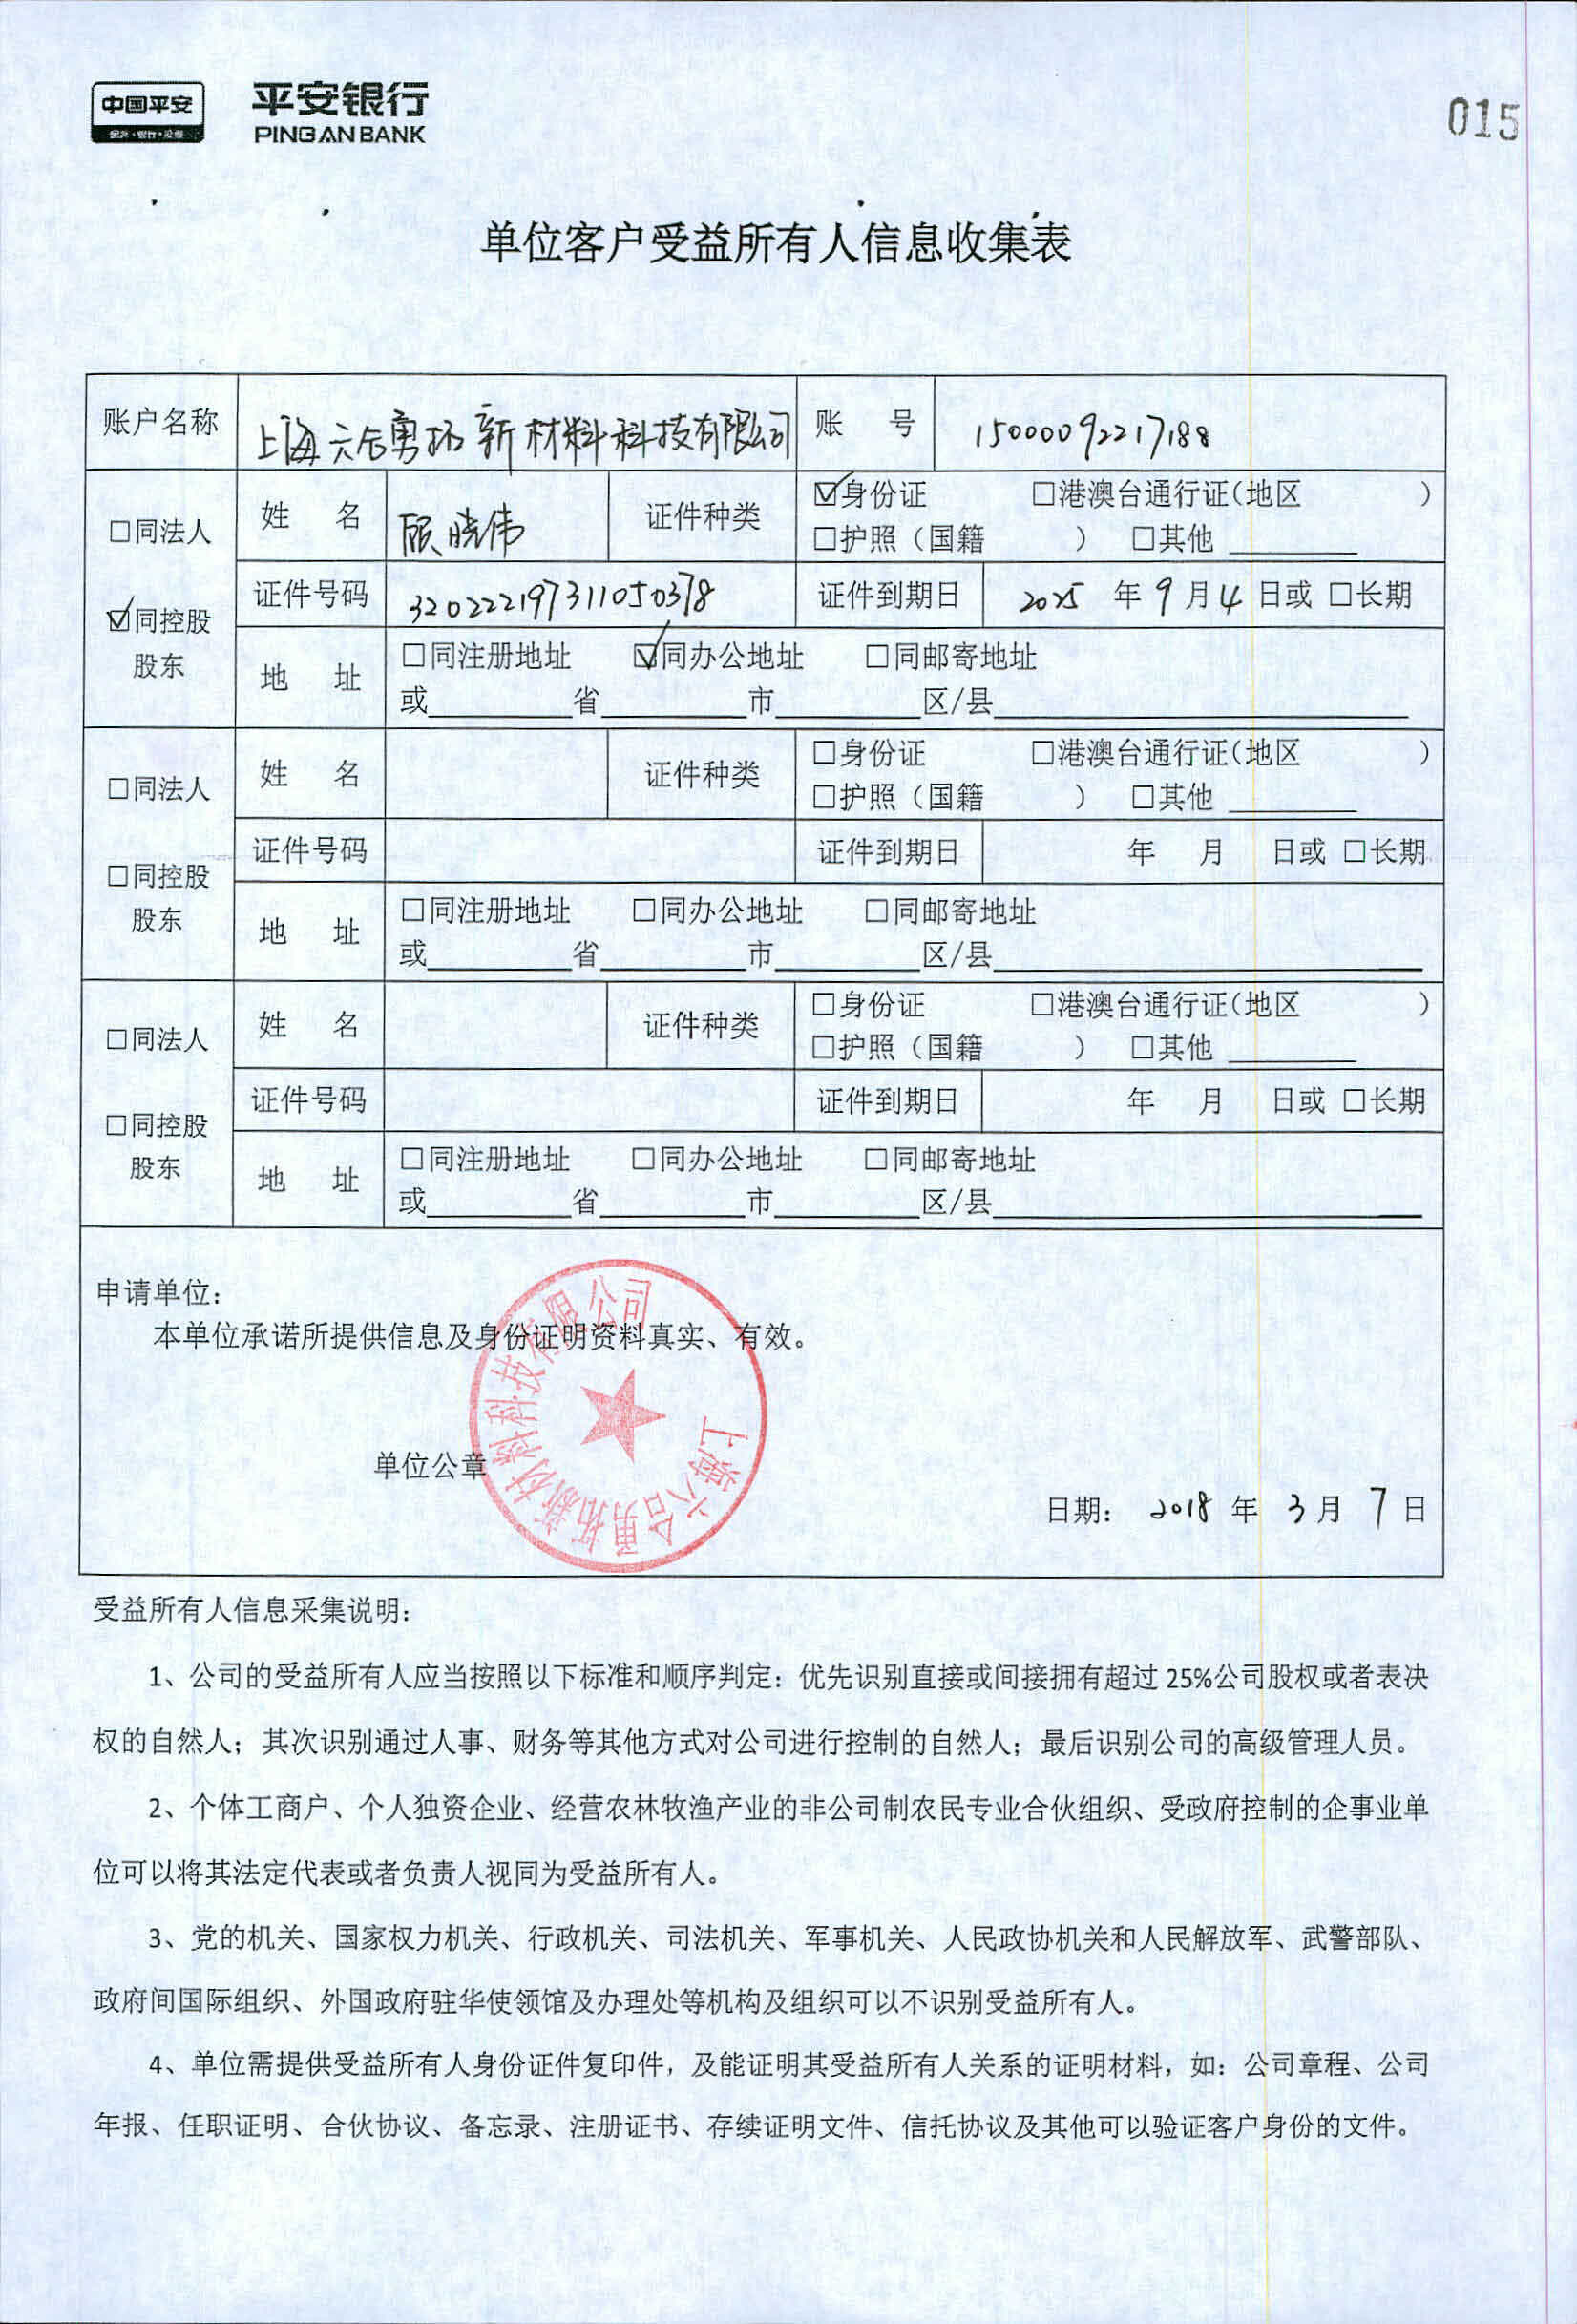 中国平安
保险·银行·投资
平安银行
PING AN BANK
015
单位客户受益所有人信息收集表
账户名称 上海六合勇拓新材料科技有限公司 账 号 15000092217188
☑身份证 □港澳台通行证(地区 )
姓 名 顾晓伟 证件种类
□同法人
□护照（国籍 ） □其他
证件号码 320222197311050378 证件到期日 2025 年 9 月 4 日或 □长期
☑同控股
股东
地 址 □同注册地址 ☑同办公地址 □同邮寄地址
或 省 市 区/县
□身份证 □港澳台通行证(地区 )
姓 名 证件种类
□同法人
□护照（国籍 ） □其他
证件号码 证件到期日 年 月 日或 □长期
□同控股
股东
地 址 □同注册地址 □同办公地址 □同邮寄地址
或 省 市 区/县
□身份证 □港澳台通行证(地区 )
姓 名 证件种类
□同法人
□护照（国籍 ） □其他
证件号码 证件到期日 年 月 日或 □长期
□同控股
股东
地 址 □同注册地址 □同办公地址 □同邮寄地址
或 省 市 区/县
申请单位：
本单位承诺所提供信息及身份证明资料真实、有效。
单位公章
上海六合勇拓新材料科技有限公司
日期： 2018 年 3 月 7 日
受益所有人信息采集说明：
1、公司的受益所有人应当按照以下标准和顺序判定：优先识别直接或间接拥有超过 25%公司股权或者表决
权的自然人；其次识别通过人事、财务等其他方式对公司进行控制的自然人；最后识别公司的高级管理人员。
2、个体工商户、个人独资企业、经营农林牧渔产业的非公司制农民专业合伙组织、受政府控制的企事业单
位可以将其法定代表或者负责人视同为受益所有人。
3、党的机关、国家权力机关、行政机关、司法机关、军事机关、人民政协机关和人民解放军、武警部队、
政府间国际组织、外国政府驻华使领馆及办理处等机构及组织可以不识别受益所有人。
4、单位需提供受益所有人身份证件复印件，及能证明其受益所有人关系的证明材料，如：公司章程、公司
年报、任职证明、合伙协议、备忘录、注册证书、存续证明文件、信托协议及其他可以验证客户身份的文件。